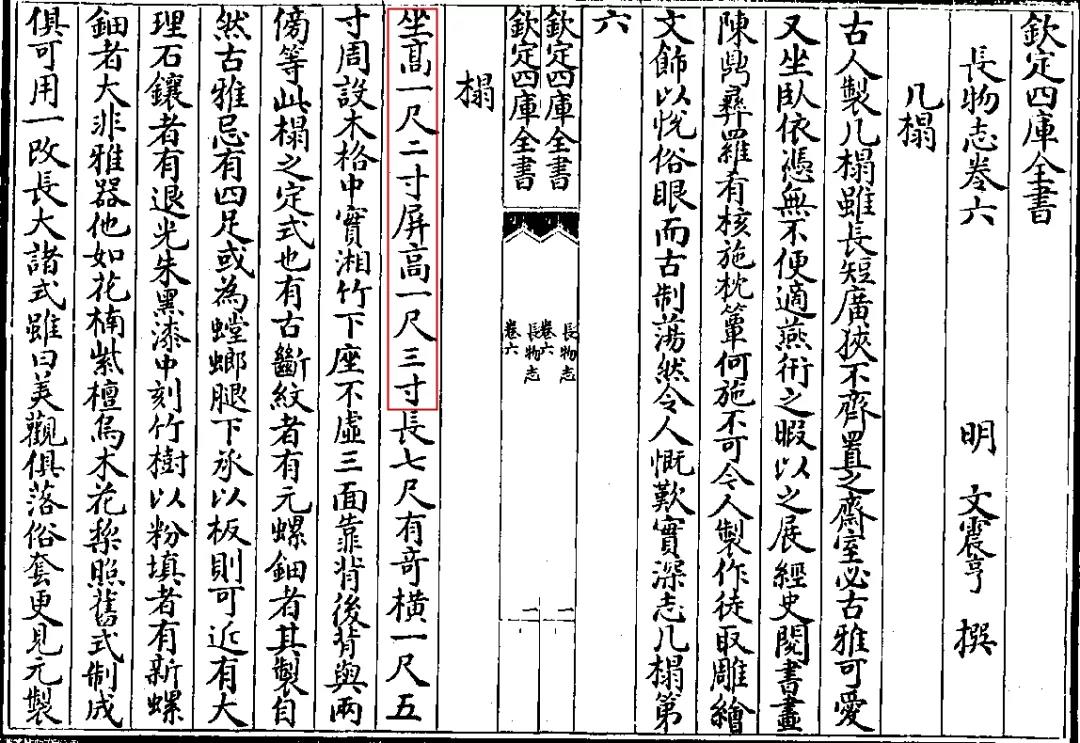 欽定四庫全書
長物志卷六
明 文震亨 撰
几榻
古人製几榻雖長短廣狹不齊置之齋室必古雅可愛
又坐臥依憑無不便適燕衎之暇以之展經史閱書畫
陳鼎彝羅肴核施枕簟何施不可今人製作徒取雕繪
文飾以悅俗眼而古制蕩然令人慨歎實深志几榻第
六
欽定四庫全書
長物志
卷六
一
欽定四庫全書
長物志
卷六
二
榻
坐高一尺二寸屏高一尺三寸長七尺有奇橫一尺五
寸周設木格中實湘竹下座不虛三面靠背後背與兩
傍等此榻之定式也有古斷紋者有元螺鈿者其製自
然古雅忌有四足或為螳螂腿下承以板則可近有大
理石鑲者有退光朱黑漆中刻竹樹以粉填者有新螺
鈿者大非雅器他如花楠紫檀烏木花梨照舊式制成
俱可用一改長大諸式雖曰美觀俱落俗套更見元製